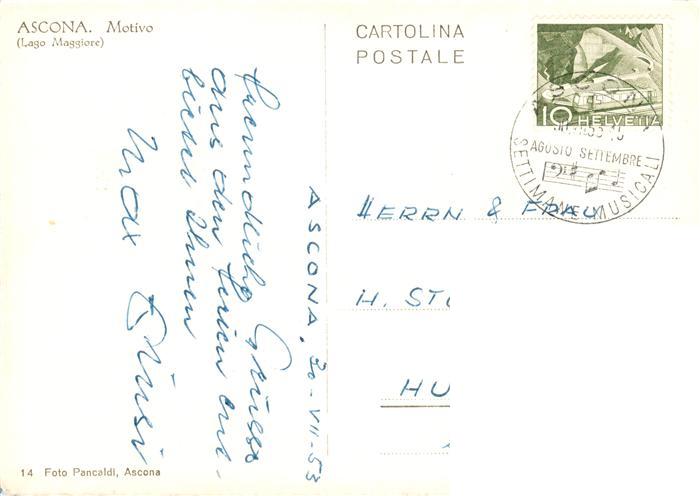 ASCONA. Motivo
(Lago Maggiore)
CARTOLINA
POSTALE
10 HELVETIA
ASCONA
AGOSTO SETTEMBRE
SETTIMANE MUSICALI
ASCONA, 20-VII-53
freundliche Grüsse
aus den Ferien ent-
bietet Ihnen
Max
HERRN & FRAU
H. ST
HU
14 Foto Pancaldi, Ascona